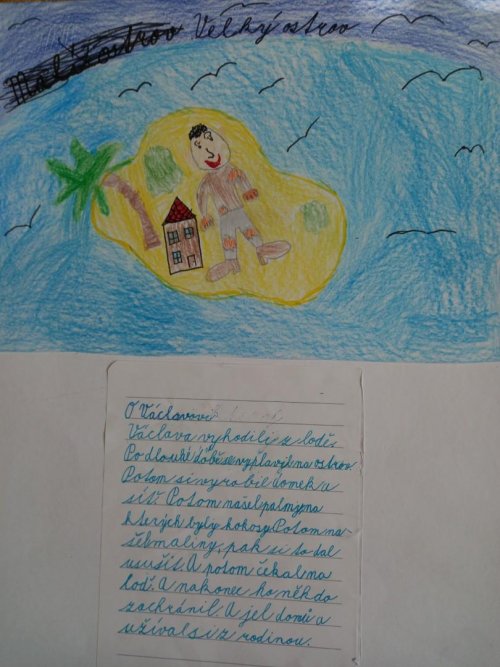 Malý ostrov Velký ostrov
O Václavovi
Václava vyhodili z lodě.
Po dlouhé době se vyplavil na ostrov
Potom si vyrobil domek a
síť. Potom našel palmy na
kterých byly kokosy. Potom na-
šel maliny, pak si to dal
usušit. A potom čekal na
loď. A nakonec ho někdo
zachránil. A jel domů a
užíval si z rodinou.